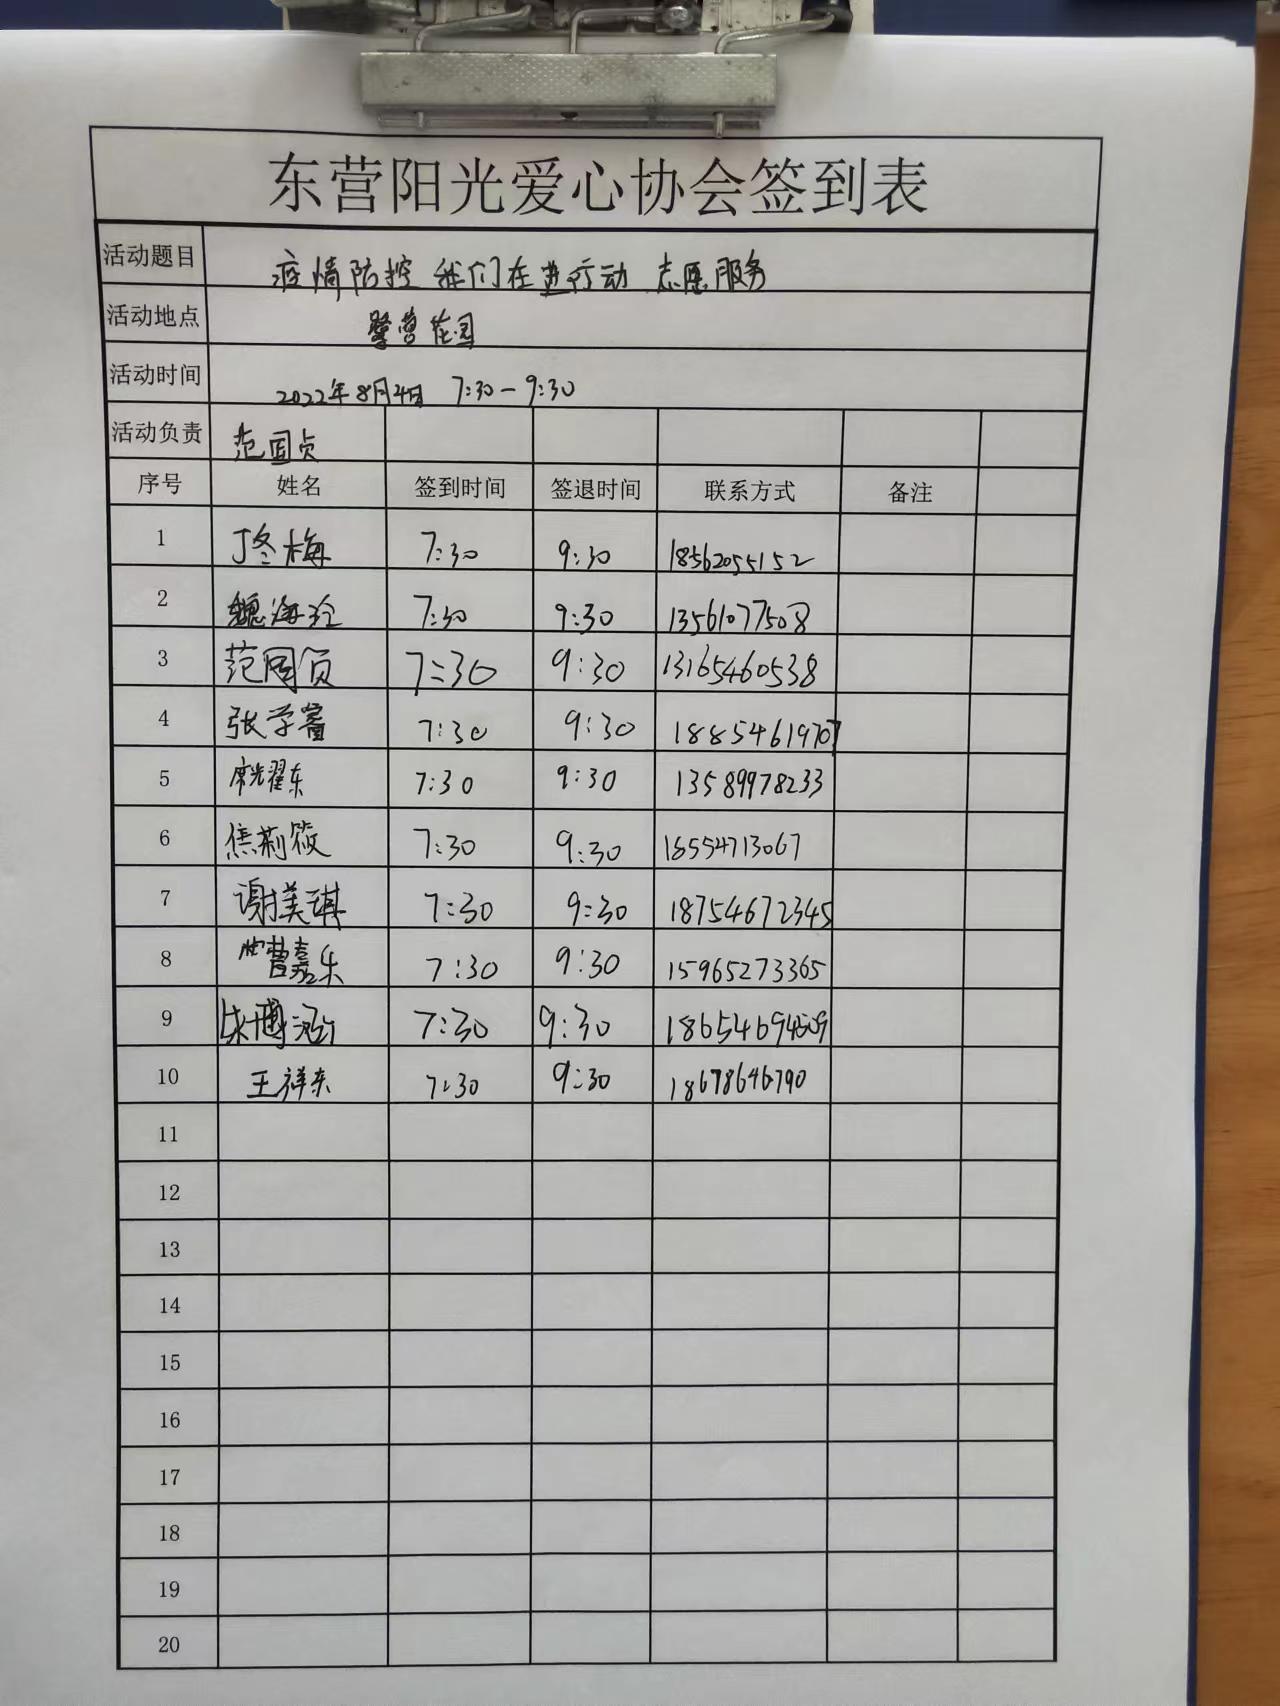 东营阳光爱心协会签到表
活动题目 疫情防控 我们在进行动 志愿服务
活动地点 营花园
活动时间 2022年8月4日 7:30-9:30
活动负责 范国贞
序号 姓名 签到时间 签退时间 联系方式 备注
1 丁冬梅 7:30 9:30 18562055152
2 魏海玲 7:30 9:30 13561077508
3 范国贞 7:30 9:30 13165460538
4 张学睿 7:30 9:30 18854619707
5 7:30 9:30 13589978233
6 焦荊筱 7:30 9:30 18554713067
7 谢美琪 7:30 9:30 18754672345
8 嘉乐 7:30 9:30 15965273365
9 7:30 9:30 18654694509
10 王祥东 7:30 9:30 18678646790
11
12
13
14
15
16
17
18
19
20